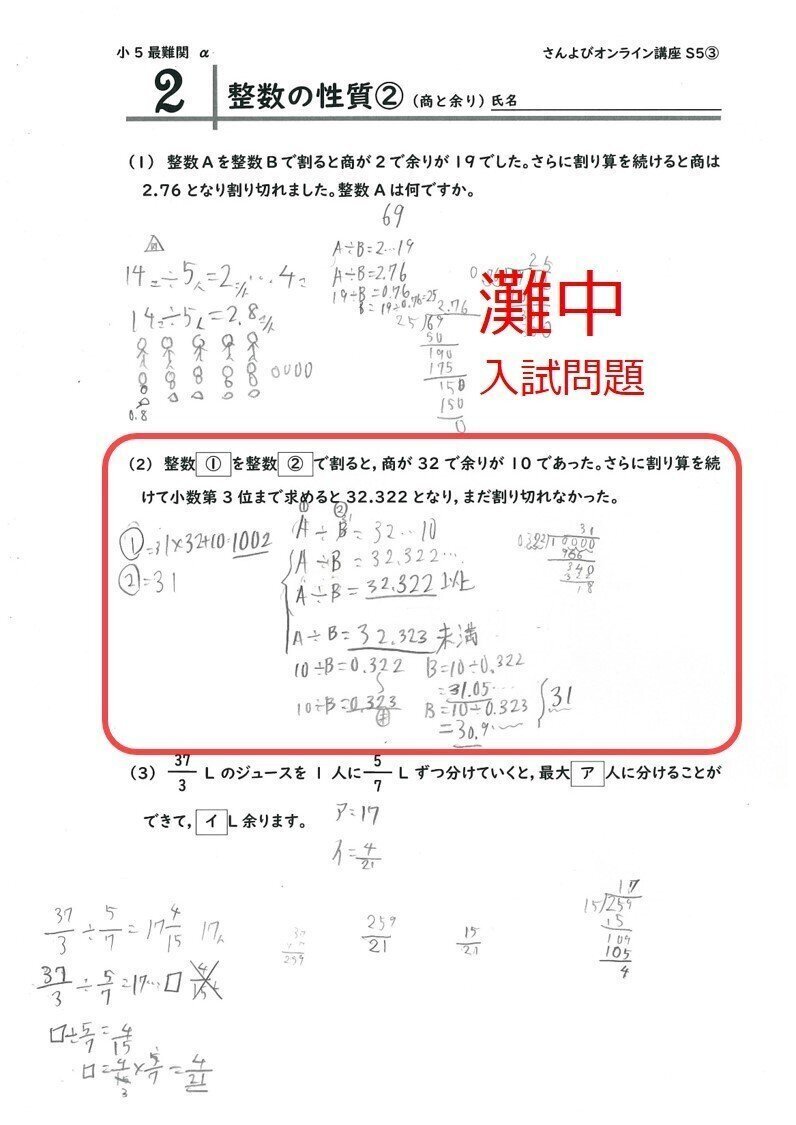 小5最難関 α
さんよびオンライン講座 S5③
2 整数の性質②(商と余り)氏名
(1) 整数Aを整数Bで割ると商が2で余りが19でした。さらに割り算を続けると商は
2.76となり割り切れました。整数Aは何ですか。
69
例
14こ÷5人=2こ/人…4こ
14こ÷5人=2.8こ/人
0.8
A÷B=2…19
A÷B=2.76
19÷B=0.76
B=19÷0.76=25
2.76
25)69
50
190
175
150
150
0
灘中
入試問題
(2) 整数 ① を整数 ② で割ると,商が32で余りが10であった。さらに割り算を続
けて小数第3位まで求めると32.322となり,まだ割り切れなかった。
①=31×32+10=1002
②=31
① ②
A÷B=32…10
A÷B=32.322…
A÷B=32.322以上
A÷B=32.323未満
10÷B=0.322
10÷B=0.323
B=10÷0.322
=31.05…
B=10÷0.323
=30.9…
31
31
0.322)10000
966
340
322
18
(3) 37/3 Lのジュースを1人に 5/7 Lずつ分けていくと,最大 ア 人に分けることが
できて, イ L余ります。
ア=17
イ=4/21
37/3÷5/7=17 4/15 17人
37/3÷5/7=17…□
□÷5/7=4/15
□=4/15×5/7=4/21
259/21
15/21
17
15)259
15
109
105
4